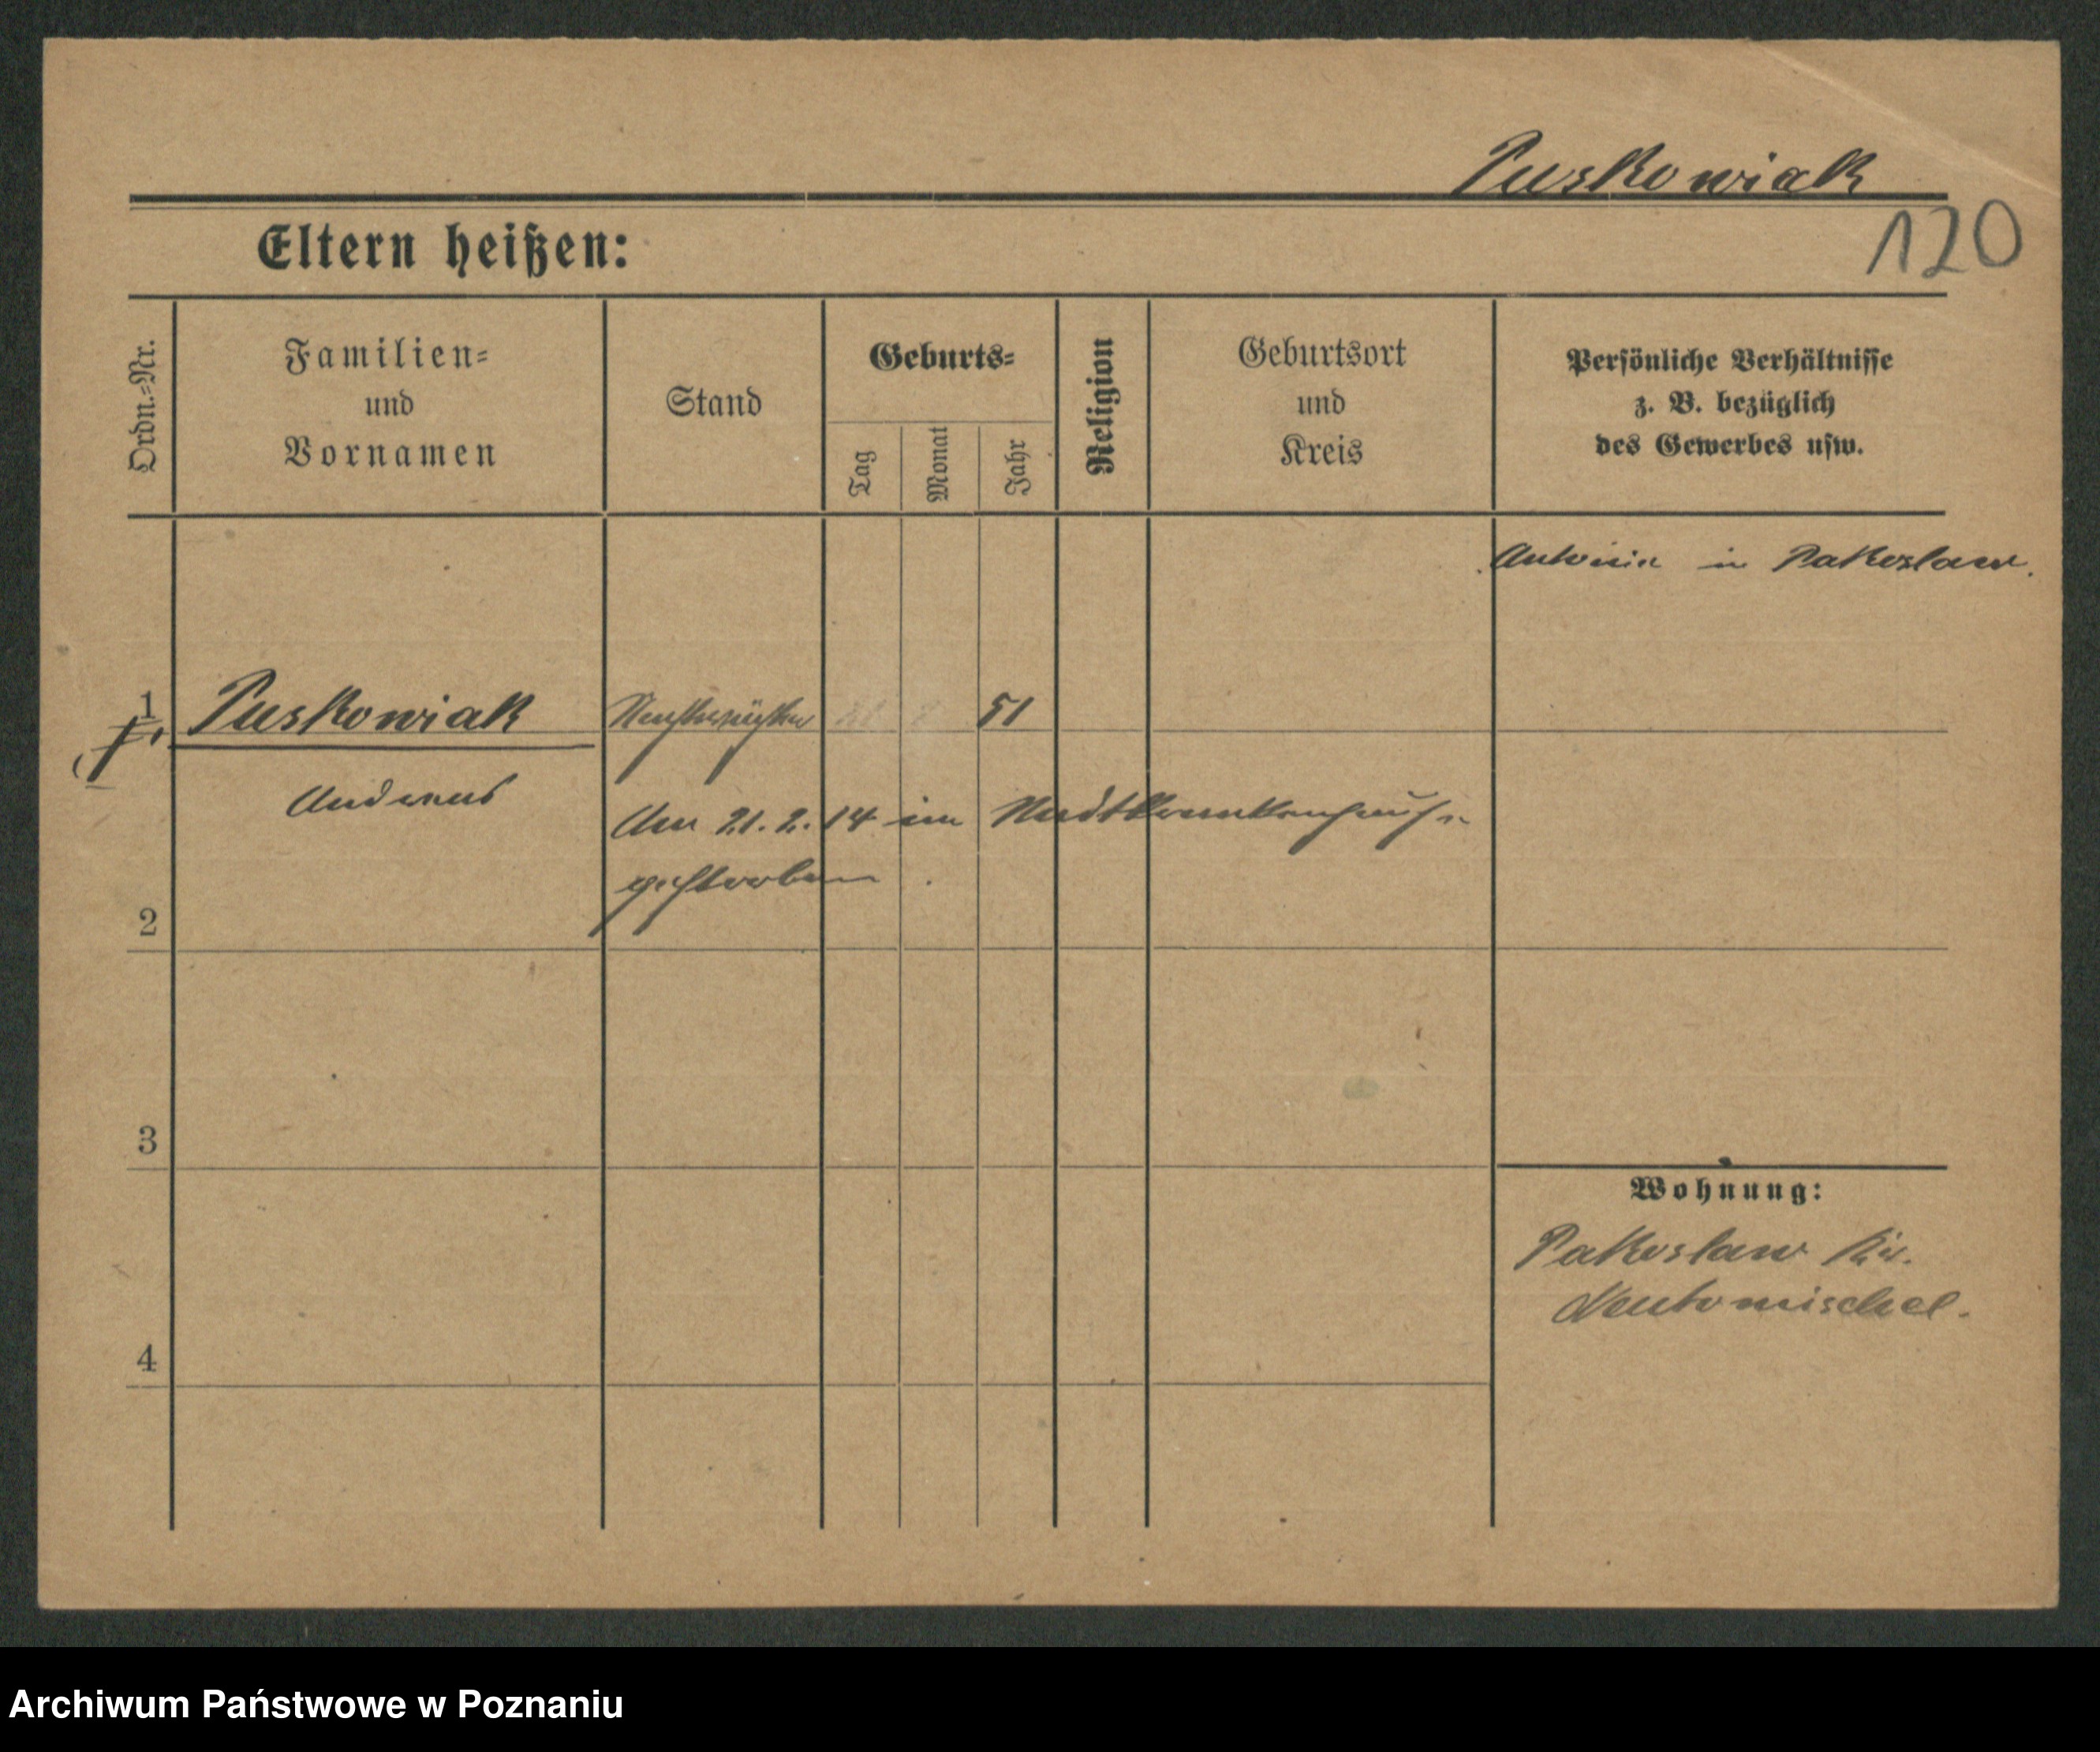 Puskowiak
120
Eltern heißen:
Ordn.=Nr.
Familien=
und
Vornamen
Stand
Geburts=
Tag
Monat
Jahr
Religion
Geburtsort
und
Kreis
Persönliche Verhältnisse
z. B. bezüglich
des Gewerbes usw.
in Pakoslaw.
1
Puskowiak
51
Andreas
Am 21.2.14 im Stadtkrankenhause
gestorben.
2
3
4
Wohnung:
Pakoslaw Kr.
Neutomischel.
Archiwum Państwowe w Poznaniu